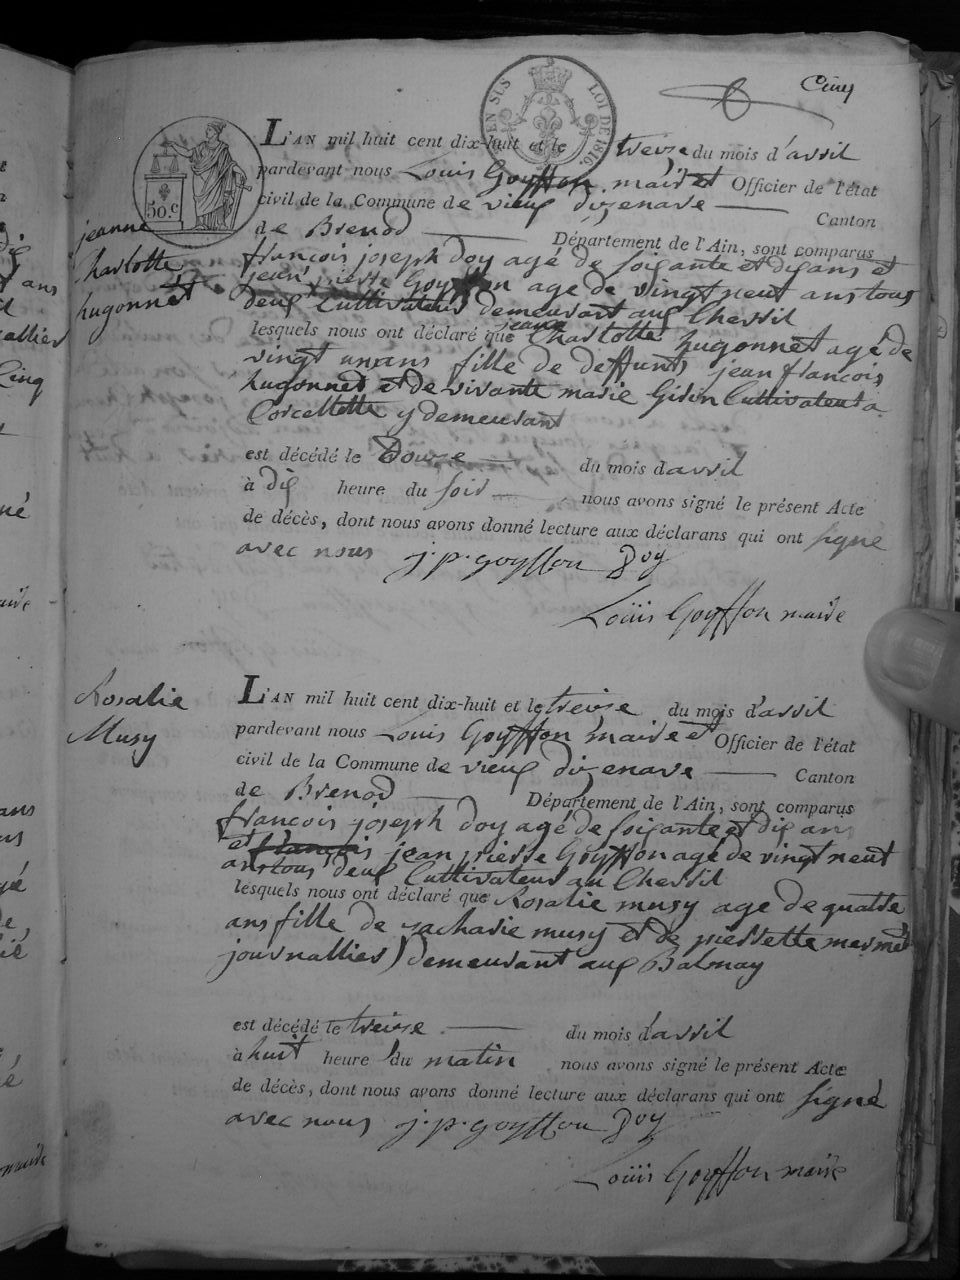 Cinq
EN SUS LOI DE 1816.
50 c
L'AN mil huit cent dix-huit et le treize du mois d'avril
pardevant nous Louis Goyffon, maire et Officier de l'état
civil de la Commune de vieux dizenave Canton
de Brenod Département de l'Ain, sont comparus
jeanne
Charlotte
hugonnet
françois joseph doy agé de soixante et dix ans et
jean pierre Goyffon age de vingt neuf ans tous
deux Cultivateurs demeurant aux Chessil
lesquels nous ont déclaré que jeanne Charlotte hugonnet agé de
vingt un ans fille de deffunts jean françois
hugonnet et de vivante marie Girin Cultivateur a
Corcellette y demeurant
est décédé le Douze du mois d avril
à dix heure du soir nous avons signé le présent Acte
de décès, dont nous avons donné lecture aux déclarans qui ont signé
avec nous j. p. goyffon Doy
Louis Goyffon maire
Rosalie
Musy
L'AN mil huit cent dix-huit et le treize du mois d'avril
pardevant nous Louis Goyffon maire et Officier de l'état
civil de la Commune de vieux dizenave Canton
de Brenod Département de l'Ain, sont comparus
françois joseph doy agé de soixante et dix ans
et françois jean pierre Goyffon agé de vingt neuf
ans tous deux Cultivateurs au Chessil
lesquels nous ont déclaré que Rosalie musy age de quatre
ans fille de zacharie musy et de pierrette mermet
journallier) demeurant aux Balmay
est décédé le treize du mois d'avril
à huit heure du matin nous avons signé le présent Acte
de décès, dont nous avons donné lecture aux déclarans qui ont signé
avec nous j. p. goyffon Doy
Louis Goyffon maire